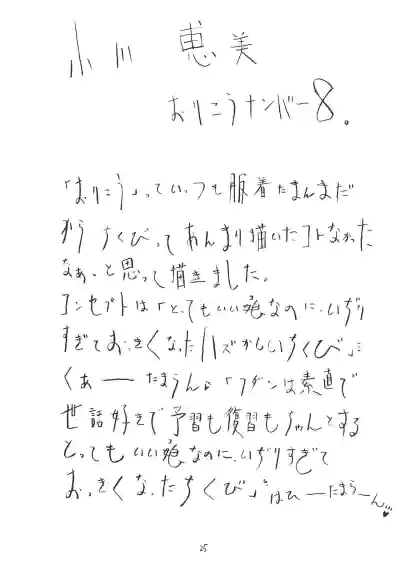 小川 恵美
おりこうナンバー8。
「おりこう」っていっつも服着たまんまだ
から ちくびってあんまり描いたコトなかった
なぁ、と思って描きました。
コンセプトは「とってもいい娘なのに、いぢり
すぎておっきくなったハズかしいちくび」に
くぁーーたまうん。「フダンは素直で
世話好きで予習も復習もちゃんとする
とってもいい娘なのに、いぢりすぎて
おっきくなったちくび」はひーーたまらーん
25